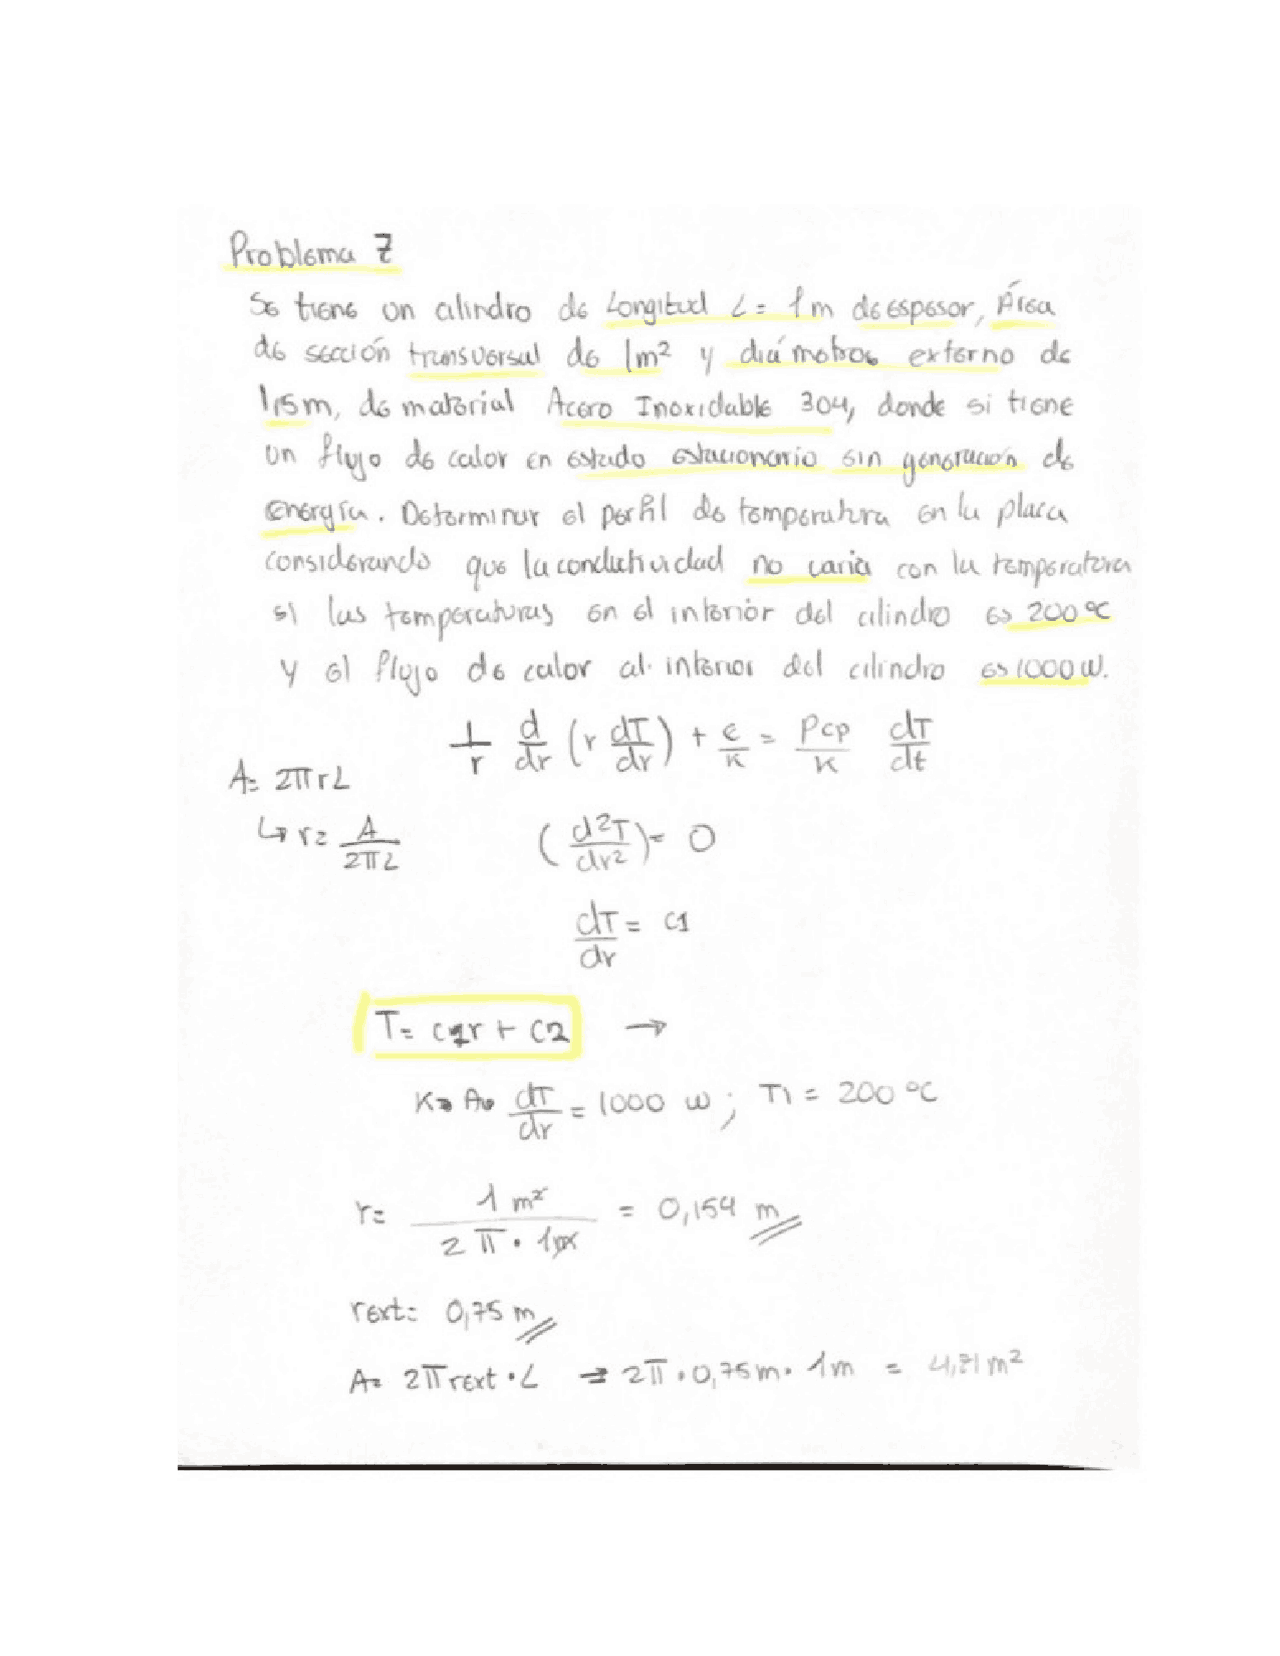 Problema 7
Se tiene un cilindro de Longitud L = 1m de espesor, Área
de sección transversal de 1m² y diámetros externo de
1,5m, de material Acero Inoxidable 304, donde si tiene
un flujo de calor en estado estacionario sin generación de
energía. Determinar el perfil de temperatura en la placa
considerando que la conductividad no varia con la temperatura
si las temperaturas en el interior del cilindro es 200 °C
y el flujo de calor al interior del cilindro es 1000 W.
1/r d/dr (r dT/dr) + e/k = ρcp/k dT/dt
A = 2πrL
↳ r = A/2πL
(d²T/dr²) = 0
dT/dr = c1
T = c1r + c2 →
K • A • dT/dr = 1000 W ; T1 = 200 °C
r = 1 m² / 2π • 1m = 0,154 m
rext = 0,75 m
A = 2π rext • L ⇒ 2π • 0,75 m • 1m = 4,71 m²